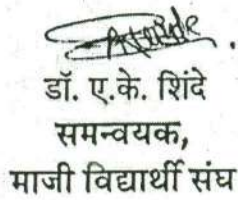 डॉ. ए.के. शिंदे
समन्वयक,
माजी विद्यार्थी संघ